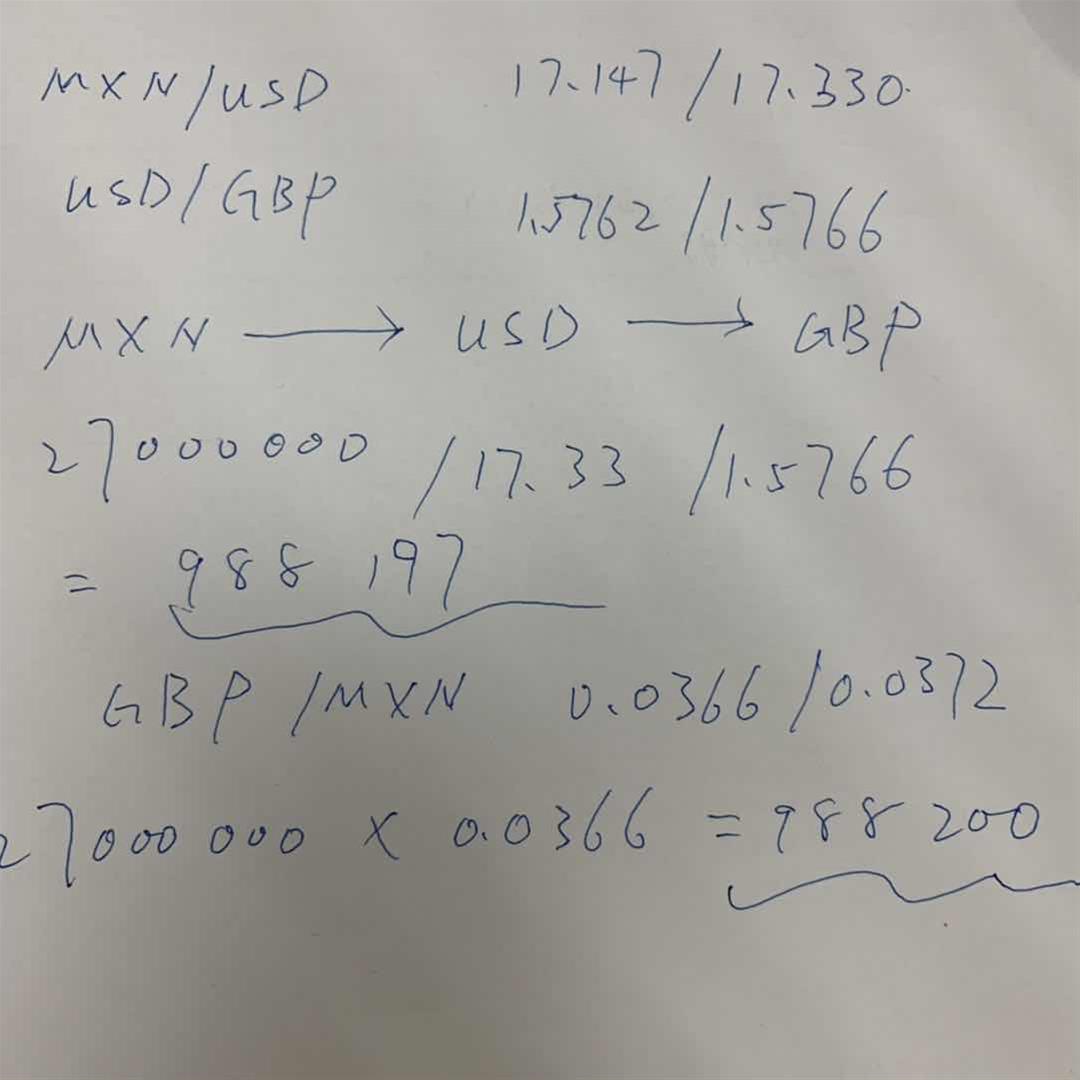 MXN/USD 17.147/17.330
USD/GBP 1.5762/1.5766
MXN → USD → GBP
27000000 /17.33 /1.5766
= 988 197
GBP /MXN 0.0366/0.0372
27000 000 × 0.0366 = 988 200